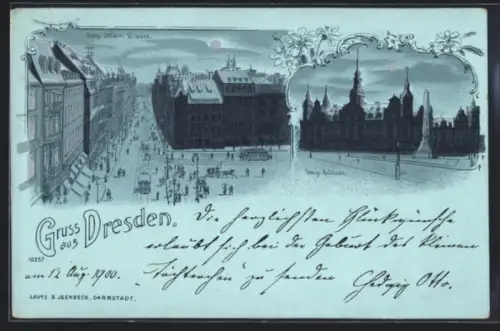 König Johann-Strasse
Königl. Schloss.
Gruss aus Dresden.
10257
Die herzlichsten Glückwünsche
erlaubt sich bei der Geburt des kleinen
am 12 Aug. 1900. Töchterchen zu senden Hedwig Otto.
LAUTZ & ISENBECK, DARMSTADT.